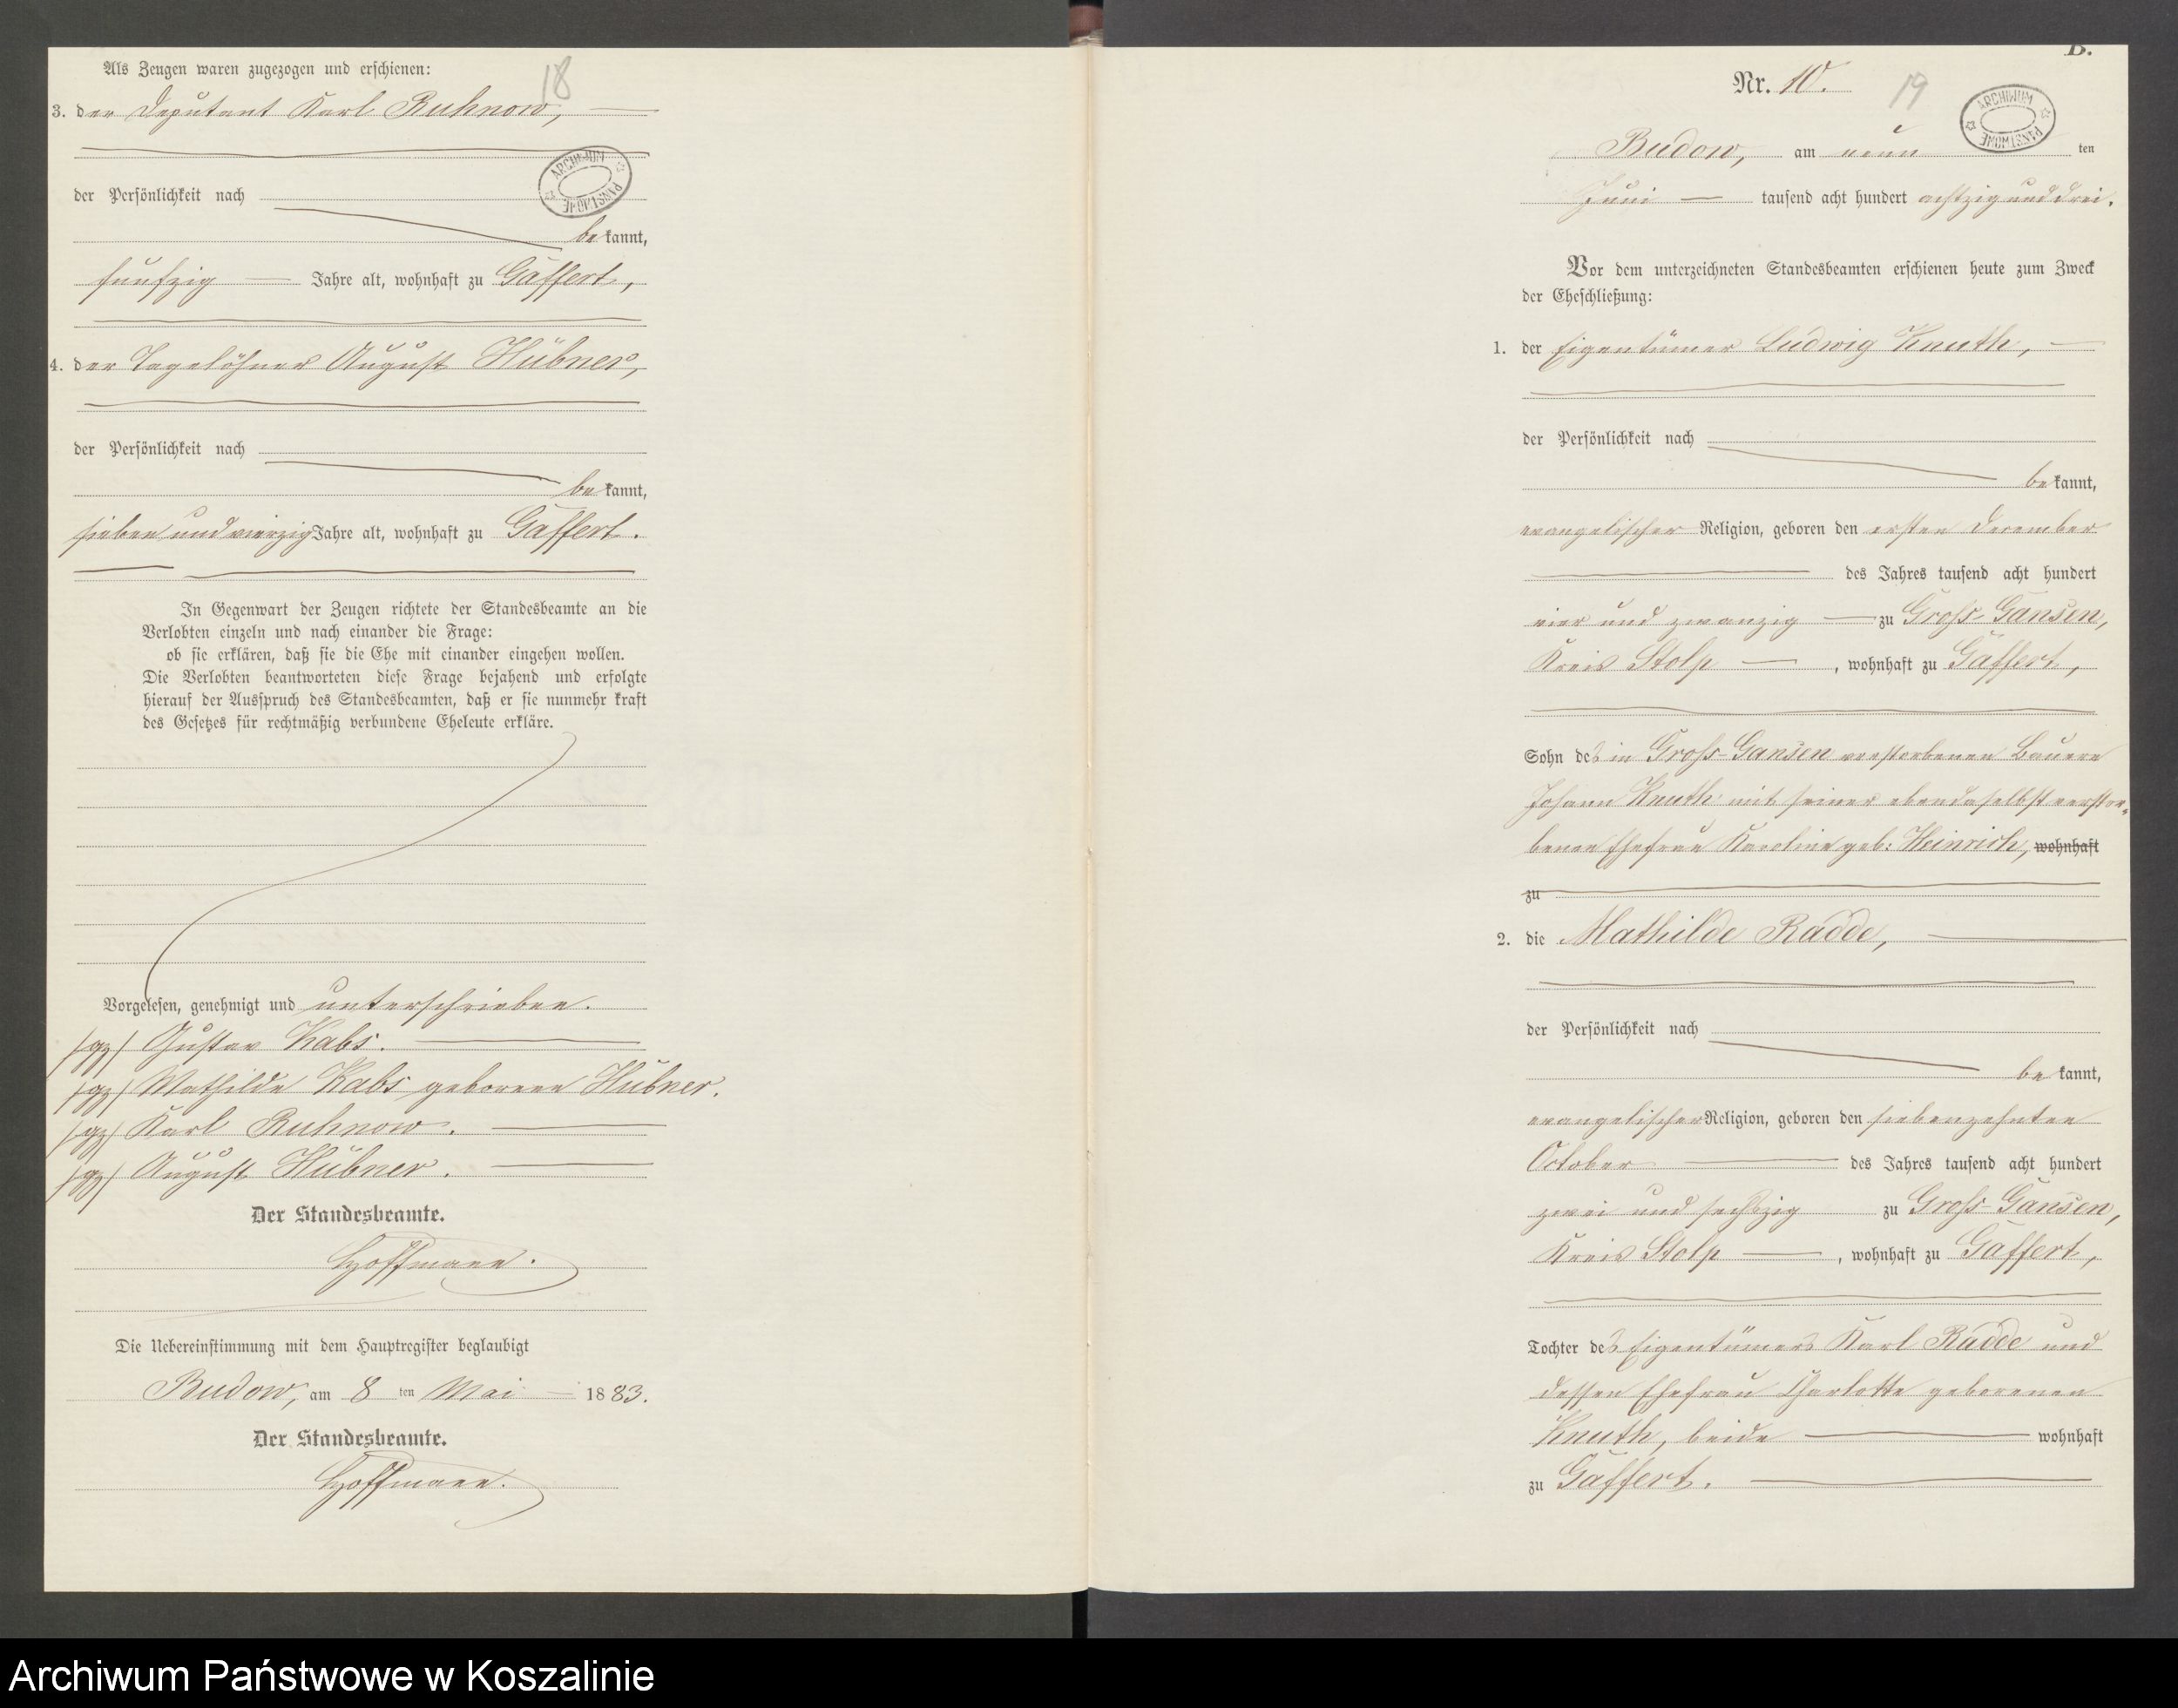 Als Zeugen waren zugezogen und erschienen:
18
3. der Deputant Karl Ruhnow,
ARCHIWUM PAŃSTWOWE
der Persönlichkeit nach
bekannt,
funfzig Jahre alt, wohnhaft zu Gaffert,
4. der Tagelöhner August Hübner,
der Persönlichkeit nach
bekannt,
sieben und vierzig Jahre alt, wohnhaft zu Gaffert.
In Gegenwart der Zeugen richtete der Standesbeamte an die
Verlobten einzeln und nach einander die Frage:
ob sie erklären, daß sie die Ehe mit einander eingehen wollen.
Die Verlobten beantworteten diese Frage bejahend und erfolgte
hierauf der Ausspruch des Standesbeamten, daß er sie nunmehr kraft
des Gesetzes für rechtmäßig verbundene Eheleute erkläre.
Vorgelesen, genehmigt und unterschrieben.
/gz/ Gustav Kabs.
/gz/ Mathilde Kabs geborene Hübner.
/gz/ Karl Ruhnow.
/gz/ August Hübner.
Der Standesbeamte.
Hoffmann.
Die Uebereinstimmung mit dem Hauptregister beglaubigt
Budow, am 8 ten Mai 1883.
Der Standesbeamte.
Hoffmann.
B.
Nr. 10.
19
ARCHIWUM PAŃSTWOWE
Budow, am neun ten
Juni tausend acht hundert achtzig und drei.
Vor dem unterzeichneten Standesbeamten erschienen heute zum Zweck
der Eheschließung:
1. der Eigentümer Ludwig Knuth,
der Persönlichkeit nach
bekannt,
evangelischer Religion, geboren den ersten December
des Jahres tausend acht hundert
vier und zwanzig zu Groß-Gansen,
Kreis Stolp, wohnhaft zu Gaffert,
Sohn des in Groß-Gansen verstorbenen Bauern
Johann Knuth mit seiner ebendaselbst verstor-
benen Ehefrau Karoline geb: Heinrich, wohnhaft
zu
2. die Mathilde Radde,
der Persönlichkeit nach
bekannt,
evangelischer Religion, geboren den siebenzehnten
October des Jahres tausend acht hundert
zwei und sechszig zu Groß-Gansen,
Kreis Stolp, wohnhaft zu Gaffert,
Tochter des Eigentümers Karl Radde und
dessen Ehefrau Charlotte geborenen
Knuth, beide wohnhaft
zu Gaffert.
Archiwum Państwowe w Koszalinie